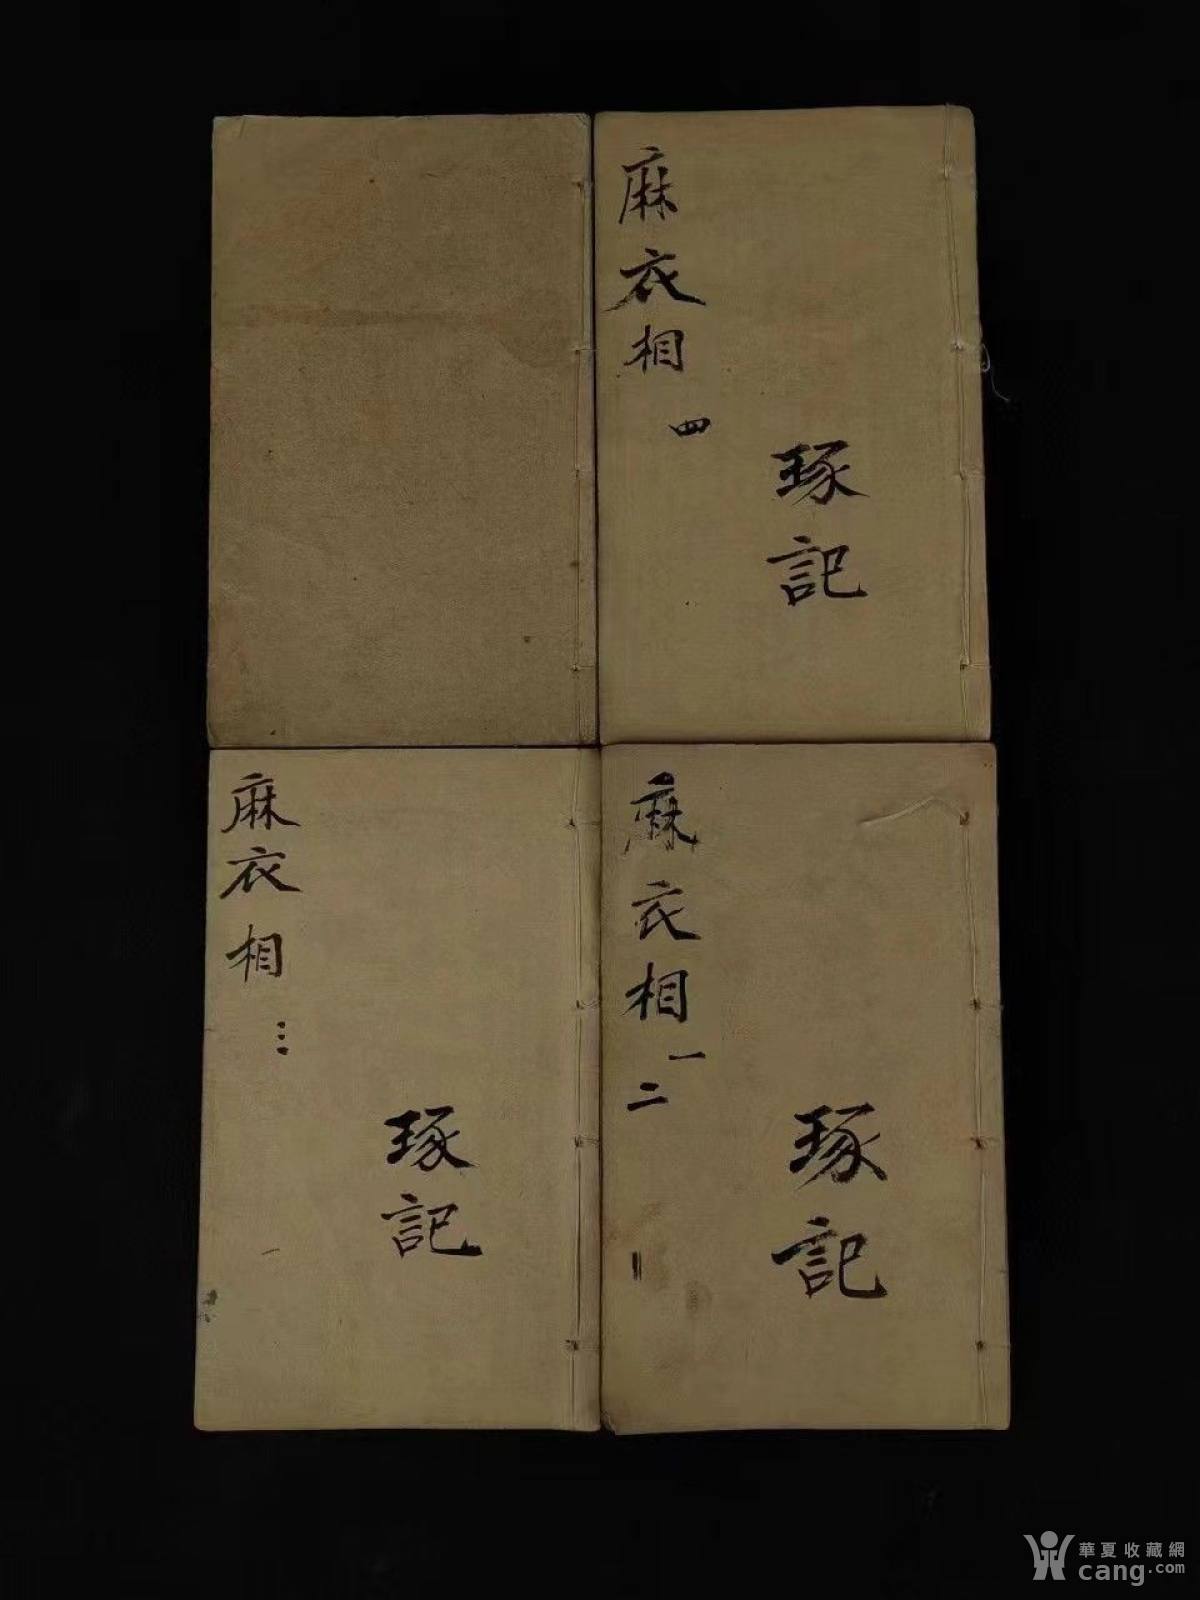 麻衣相 四
琢記
麻衣相 三
琢記
麻衣相 一
二
琢記
華夏收藏網
cang.com